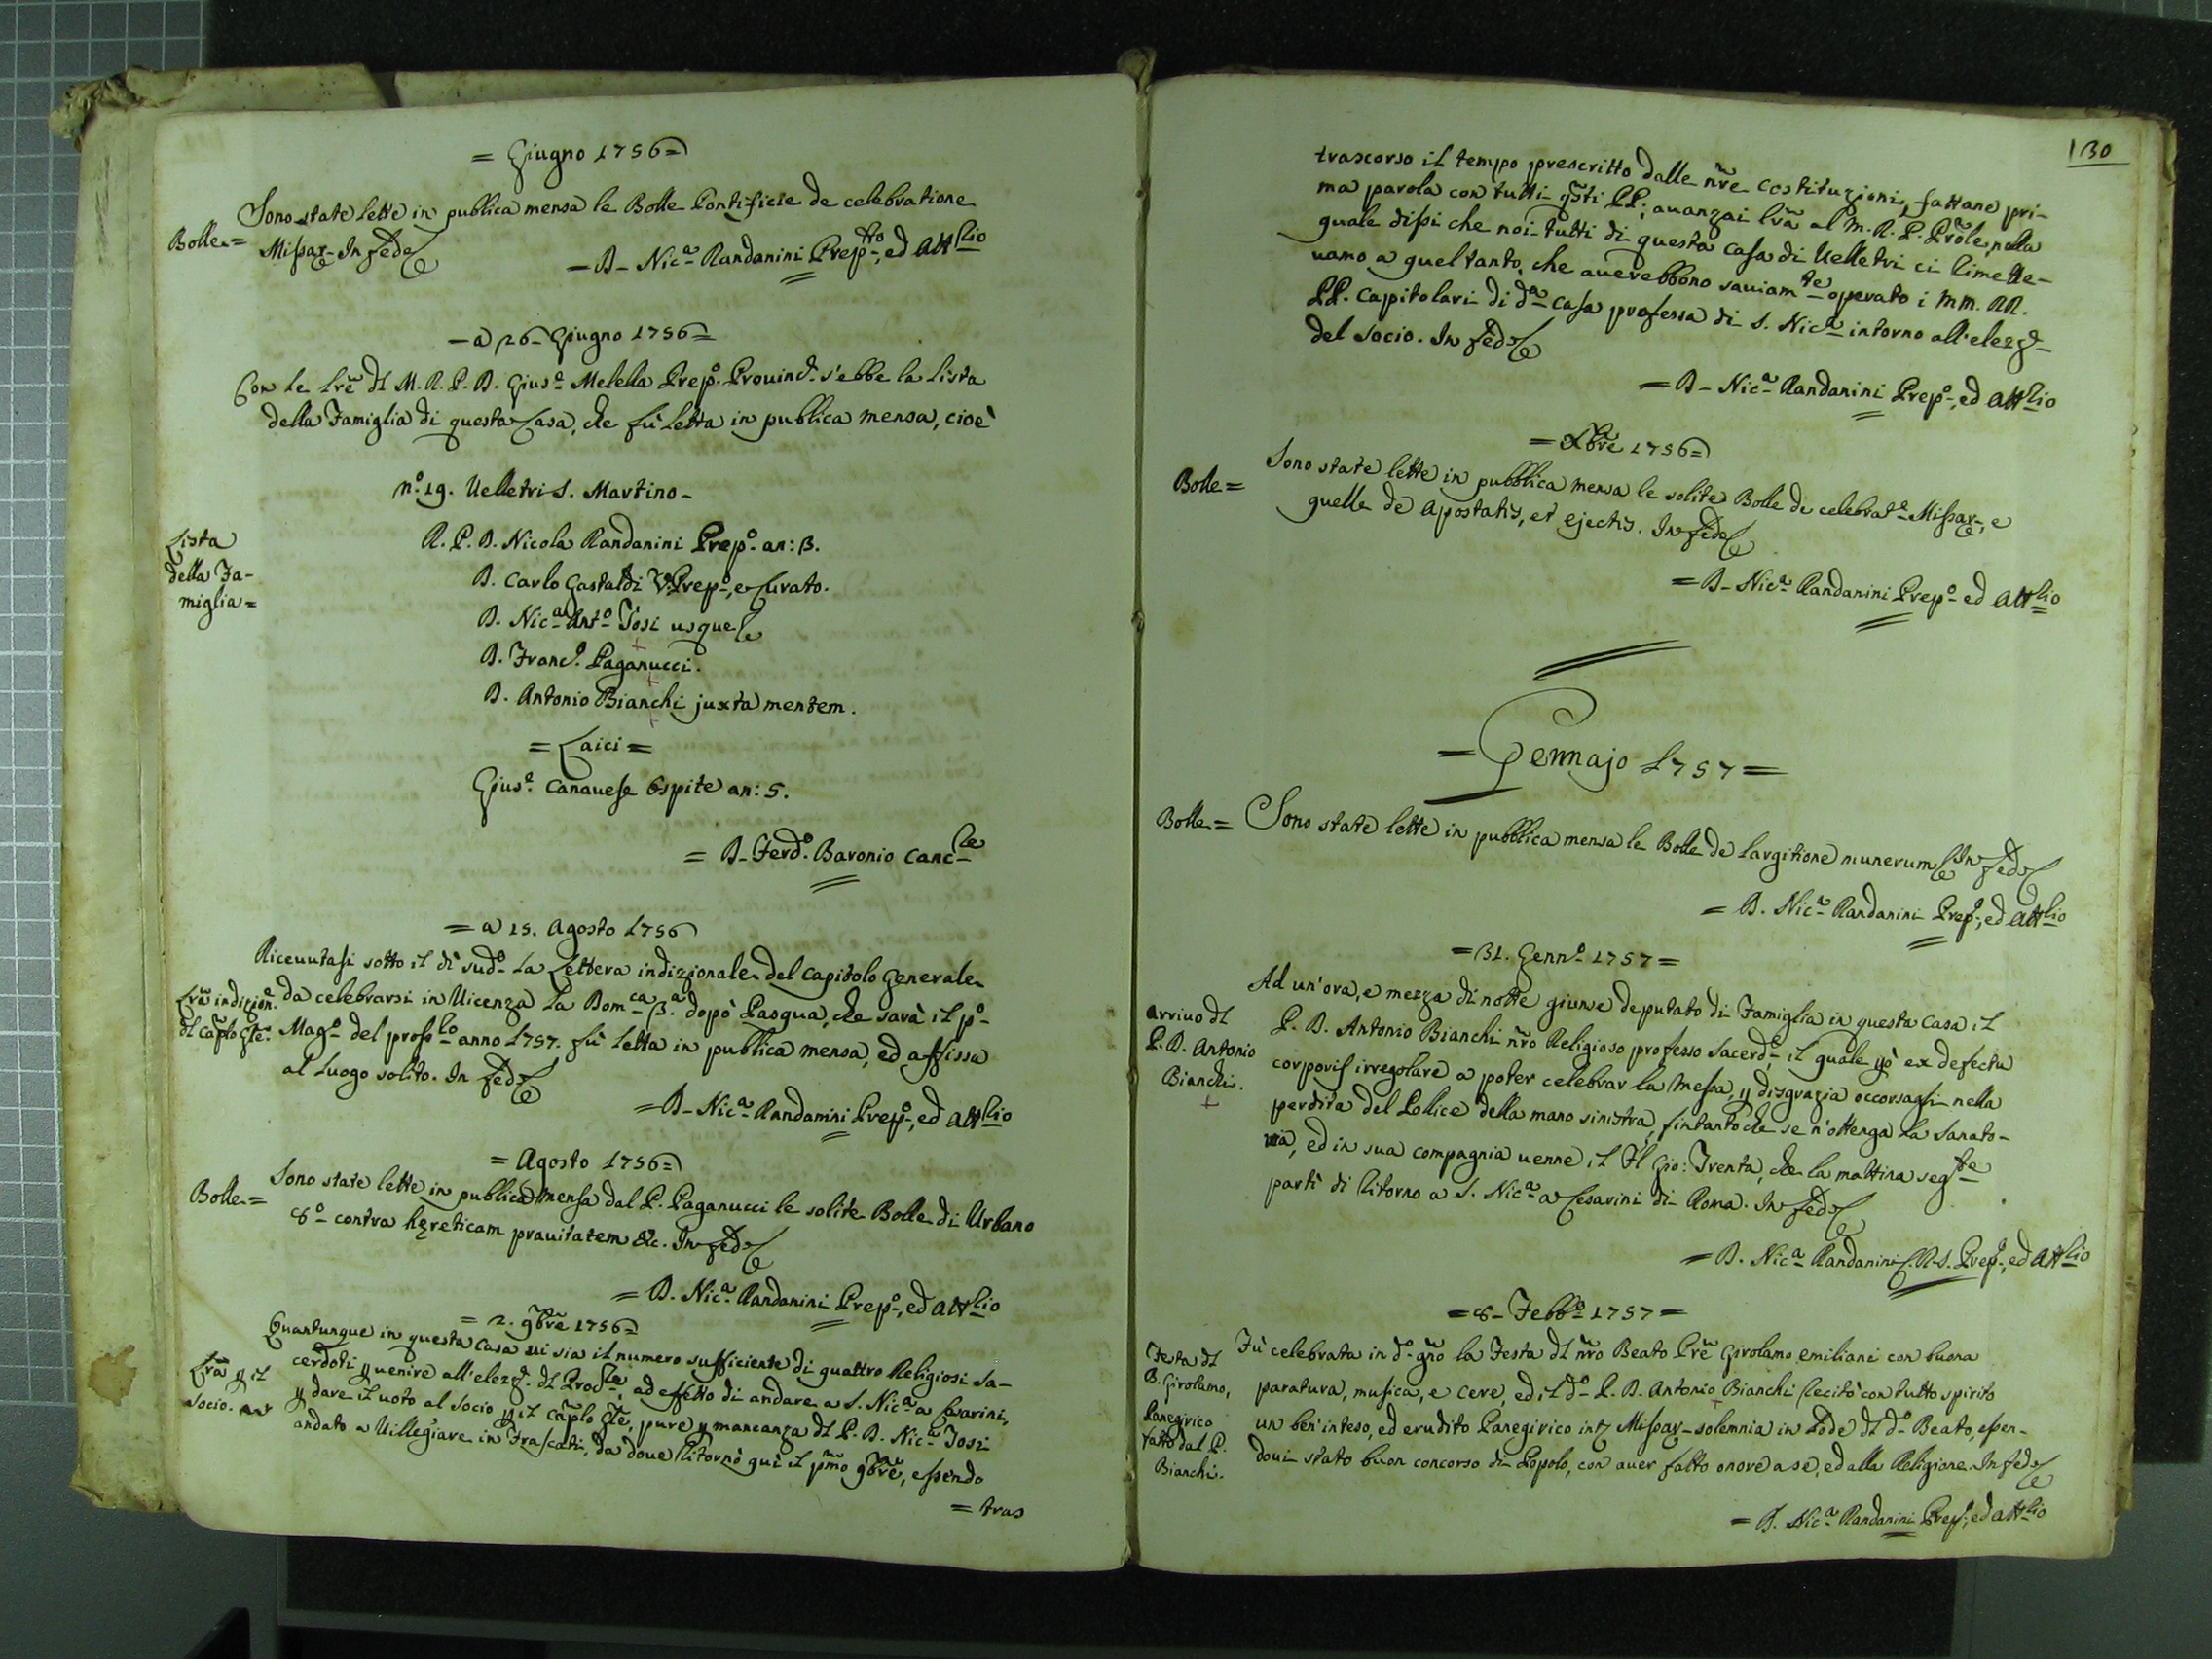 = Giugno 1756=
Sono state lette in publica mensa le Bolle Pontificie de celebratione
Bolle=
Missar. In fede
= D. Nic.a Randanini Prep.to, ed Att.lio
= a 26 Giugno 1756=
Con le lre dl M. R. P. D. Gius.e Melella Prep.o Provinc. s'ebbe la lista
della Famiglia di questa Casa, che fù letta in publica mensa, cioè
n.o 19. Velletri S. Martino-
Lista
della Fa-
miglia=
R. P. D. Nicola Randanini Prep.o an: 3.
D. Carlo Gastaldi V. Prep.o, e Curato.
D. Nic.a Ant.o Josi usque
D. Franc.o Paganucci.
D. Antonio Bianchi juxta mentem.
= Laici =
Gius.e Canavese Ospite an: 5.
= D. Ferd.o Baronio Canc.le
= a 15. Agosto 1756
Ricevutasi sotto il dì sud.o la Lettera indizionale del Capitolo Generale
Lra indizion.e
dl Caplo Gle.
da celebrarsi in Vicenza la Dom.ca 3.a dopò Pasqua, che sarà il p.o
Mag.o del pross.o anno 1757. fù letta in publica mensa, ed affissa
al luogo solito. In fede
= D. Nic.a Randanini Prep.o, ed Att.lio
= Agosto 1756=
Bolle=
Sono state lette in publica mensa dal P. Paganucci le solite Bolle di Urbano
8.o contra hęreticam pravitatem &c. In fede
= D. Nic.a Randanini Prep.o, ed Att.lio
= 2. 9bre 1756=
Quantunque in questa Casa vi sia il numero sufficiente di quattro Religiosi Sa-
Lra p il
Socio.
cerdoti p venire all'elez.e dl Proc.le, ad effetto di andare a S. Nic.a a Cesarini,
p dare il voto al Socio p il Caplo Gle, pure p mancanza dl P. D. Nic.a Josi
andato a Villegiare in Frascati, da dove ritornò quì il pmo 9bre, essendo
= tras
130
trascorso il tempo prescritto dalle nre Costituzioni, fattane pri-
ma parola con tutti qsti PP.; avanzai lra al M. R. P. Prole, nella
quale dissi che noi tutti di questa Casa di Velletri ci rimette-
vamo a quel tanto, che averebbono saviam.te operato i MM. RR.
PP. Capitolari di d.a Casa professa di S. Nic.a intorno all'elez.e
del Socio. In fede
= D. Nic.a Randanini Prep.o, ed Att.lio
= Xbre 1756=
Bolle=
Sono state lette in pubblica mensa le solite Bolle de celebrat.e Missar., e
quelle de Apostatis, et ejectis. In fede
= D. Nic.a Randanini Prep.o ed Att.lio
= Gennajo 1757 =
Bolle=
Sono state lette in pubblica mensa le Bolle de largitione munerum In fede
= D. Nic.a Randanini Prep.o, ed Att.lio
= 31. Genn.o 1757 =
Ad un'ora, e mezza di notte giunse deputato di Famiglia in questa Casa il
Arrivo dl
P. D. Antonio
Bianchi.
P. D. Antonio Bianchi nro Religioso professo Sacerd.e, il quale pò ex defectu
corporis irregolare a poter celebrar la Messa, p disgrazia occorsagli nella
perdita del Pollice della mano sinistra, fintantoche se n'ottenga la Sanato-
ria, ed in sua compagnia venne il Fl Gio: Trenta, che la mattina seg.te
partì di ritorno a S. Nic.a a Cesarini di Roma. In fede
= D. Nic.a Randanini C. R. S. Prep.o, ed Att.lio
= 8. Febb.o 1757 =
Festa dl
B. Girolamo,
Panegirico
fatto dal P.
Bianchi.
Fù celebrata in d.o gno la Festa dl nro Beato Pre Girolamo Emiliani con buona
paratura, musica, e cere, ed il d.o P. D. Antonio Bianchi recitò con tutto spirito
un ben'inteso, ed erudito Panegirico int Missar. solemnia in lode dl d.o Beato, essen-
dovi stato buon concorso di Popolo, con aver fatto onore a se, ed alla Religione. In fede
= D. Nic.a Randanini Prep.o, ed Att.lio